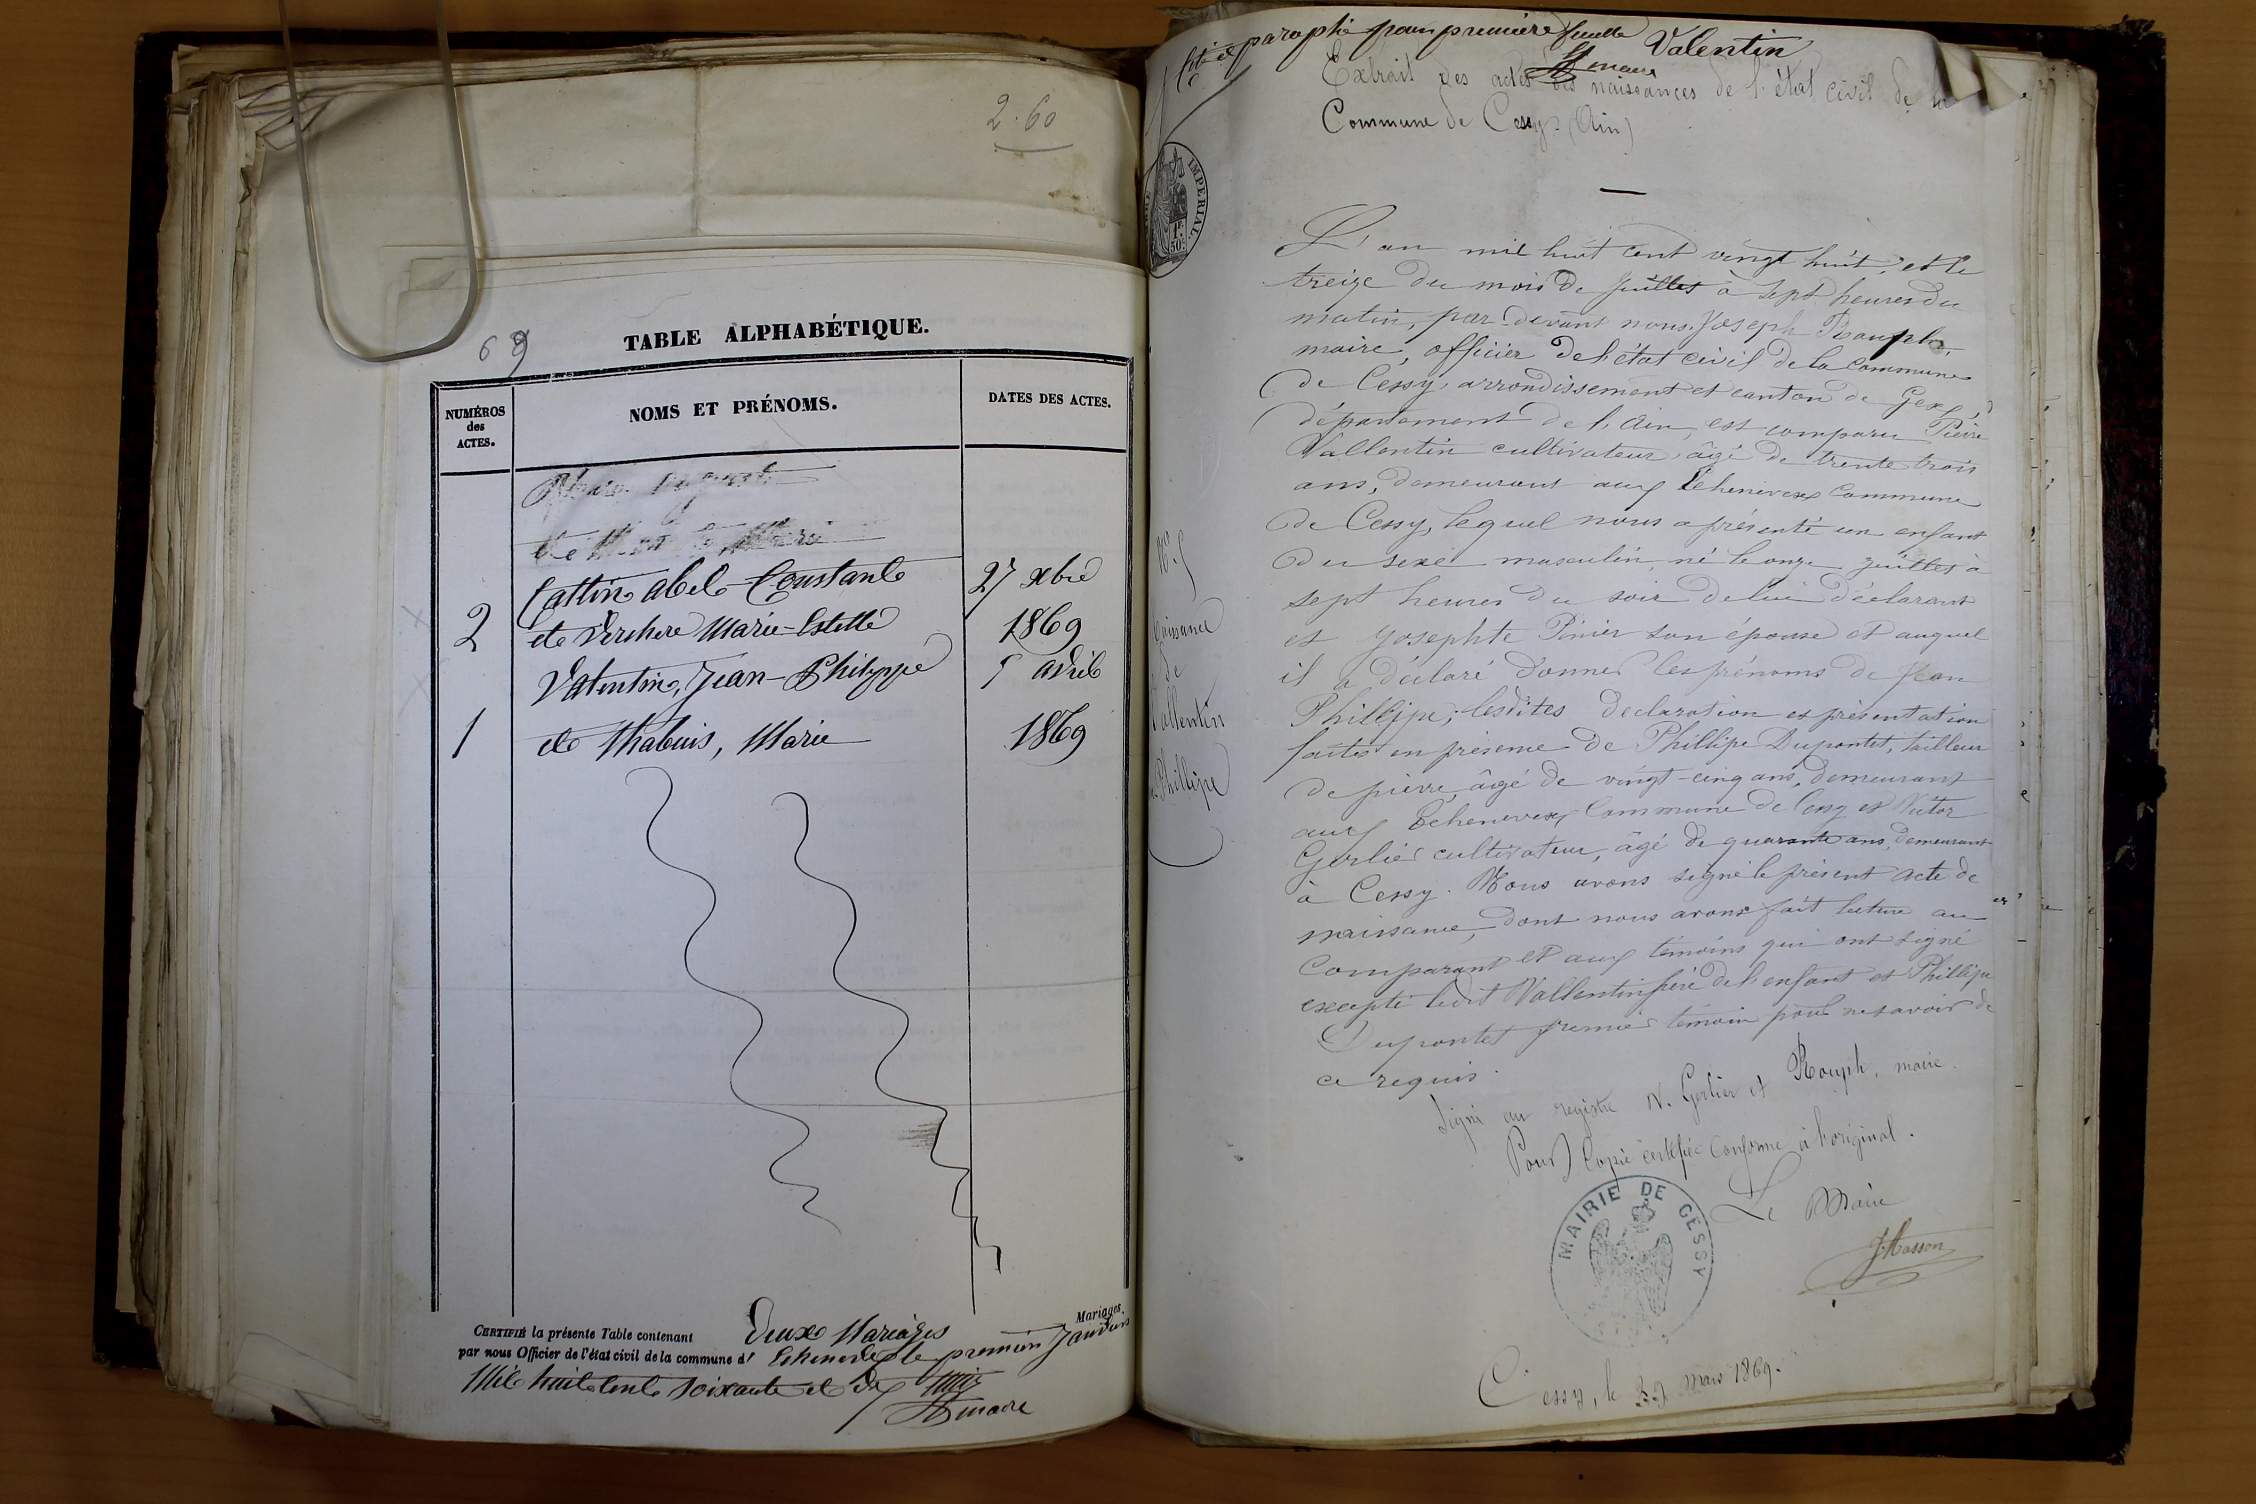 2.60
69
TABLE ALPHABÉTIQUE.
NUMÉROS
des
ACTES.
NOMS ET PRÉNOMS.
DATES DES ACTES.
Cattin Abel-Constant
27 xbre
2
et Verchere Marie-Estelle
1869
Valentin, Jean-Philippe
5 avril
1
et Thabuis, Marie
1869
CERTIFIÉ la présente Table contenant deux Mariages Mariages,
par nous Officier de l'état civil de la commune d' Echenevex le premier Janvier
Mile huit cent soixante et dix
maire
paraphé pour première feuille Valentin
maire
Extrait des actes des naissances de l'état civil de la
Commune de Cessy (Ain)
IMPERIAL
1F.
50c
L'an mil huit cent vingt huit, et le
treize du mois de Juillet à sept heures du
matin, par devant nous Joseph Rouph,
maire, officier de l'état civil de la commune
de Cessy, arrondissement et canton de Gex,
département de l'Ain, est comparu Pierre
Vallentin cultivateur, âgé de trente trois
ans, demeurant aux Echenevex commune
de Cessy, lequel nous a présenté un enfant
du sexe masculin, né le onze juillet à
sept heures du soir de lui déclarant
et Josephte Pinier son épouse et auquel
il a déclaré donner les prénoms de Jean
Phillipe; lesdites declaration et présentation
faites en présence de Phillipe Dupontet, tailleur
de pierre, âgé de vingt-cinq ans, demeurant
aux Echenevex commune de Cessy et Victor
Gerlier cultivateur, âgé de quarante ans, demeurant
à Cessy. Nous avons signé le présent acte de
naissance, dont nous avons fait lecture au
comparant et aux témoins qui ont signé
excepté ledit Vallentin père de l'enfant et Phillipe
Dupontet premier témoin pour ne savoir de
ce requis.
Signé au registre V. Gerlier et Rouph, maire.
Pour copie certifiée conforme à l'original.
Le Maire
MAIRIE DE CESSY
J. Masson
Cessy, le 29 mars 1869.
N° 5
Naissance
de
Vallentin
Phillipe